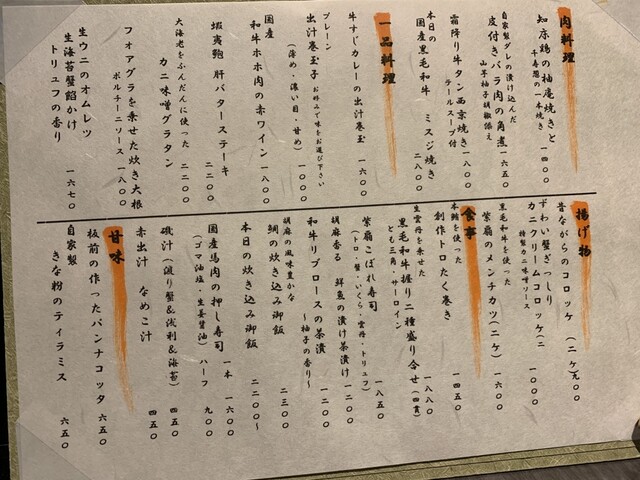 肉料理
知床鶏の柚庵焼きと
千寿葱の一本焼き 一四〇〇
自家製ダレの漬け込んだ
皮付きバラ肉の角煮 一六五〇
山芋柚子胡椒添え
霜降り牛タン西京焼き 一八〇〇
テールスープ付
本日の
国産黒毛和牛 ミスジ焼き 二八〇〇
一品料理
牛すじカレーの出汁巻玉 一六〇〇
プレーン
出汁巻玉子 お好みで味をお選び下さい 一〇〇〇
(薄め・濃い目・甘め)
国産
和牛ホホ肉の赤ワイン 一八〇〇
蝦夷鮑 肝バターステーキ 二二〇〇
大海老をふんだんに使った
カニ味噌グラタン 二二〇〇
フォアグラを乗せた炊き大根
ポルチーニソース 一八〇〇
生ウニのオムレツ
生海苔蟹餡かけ
トリュフの香り 一六七〇
揚げ物
昔ながらのコロッケ (二ケ)九〇〇
ずわい蟹ぎっしり
カニクリームコロッケ(二ケ) 一〇〇〇
特製カニ味噌ソース
黒毛和牛を使った
紫扇のメンチカツ(二ケ) 一六〇〇
食事
本鮪を使った
創作トロたく巻き 一四五〇
生雲丹を乗せた
黒毛和牛握り二種盛り合せ(四貫) 一八八〇
とも三角・サーロイン
紫扇こぼれ寿司 一八五〇
(トロ・蟹・いくら・雲丹・トリュフ)
胡麻香る 鮮魚の漬け茶漬け 一二〇〇
和牛リブロースの茶漬 一二〇〇
～柚子の香り～
胡麻の風味豊かな
鯛の炊き込み御飯 二三〇〇
本日の炊き込み御飯 二二〇〇～
国産馬肉の押し寿司 一本 一六〇〇
(ゴマ油塩・生姜醤油) ハーフ 九〇〇
磯汁(渡り蟹&浅利&海苔) 四五〇
赤出汁 なめこ汁 四五〇
甘味
板前の作ったパンナコッタ 六五〇
自家製
きな粉のティラミス 六五〇